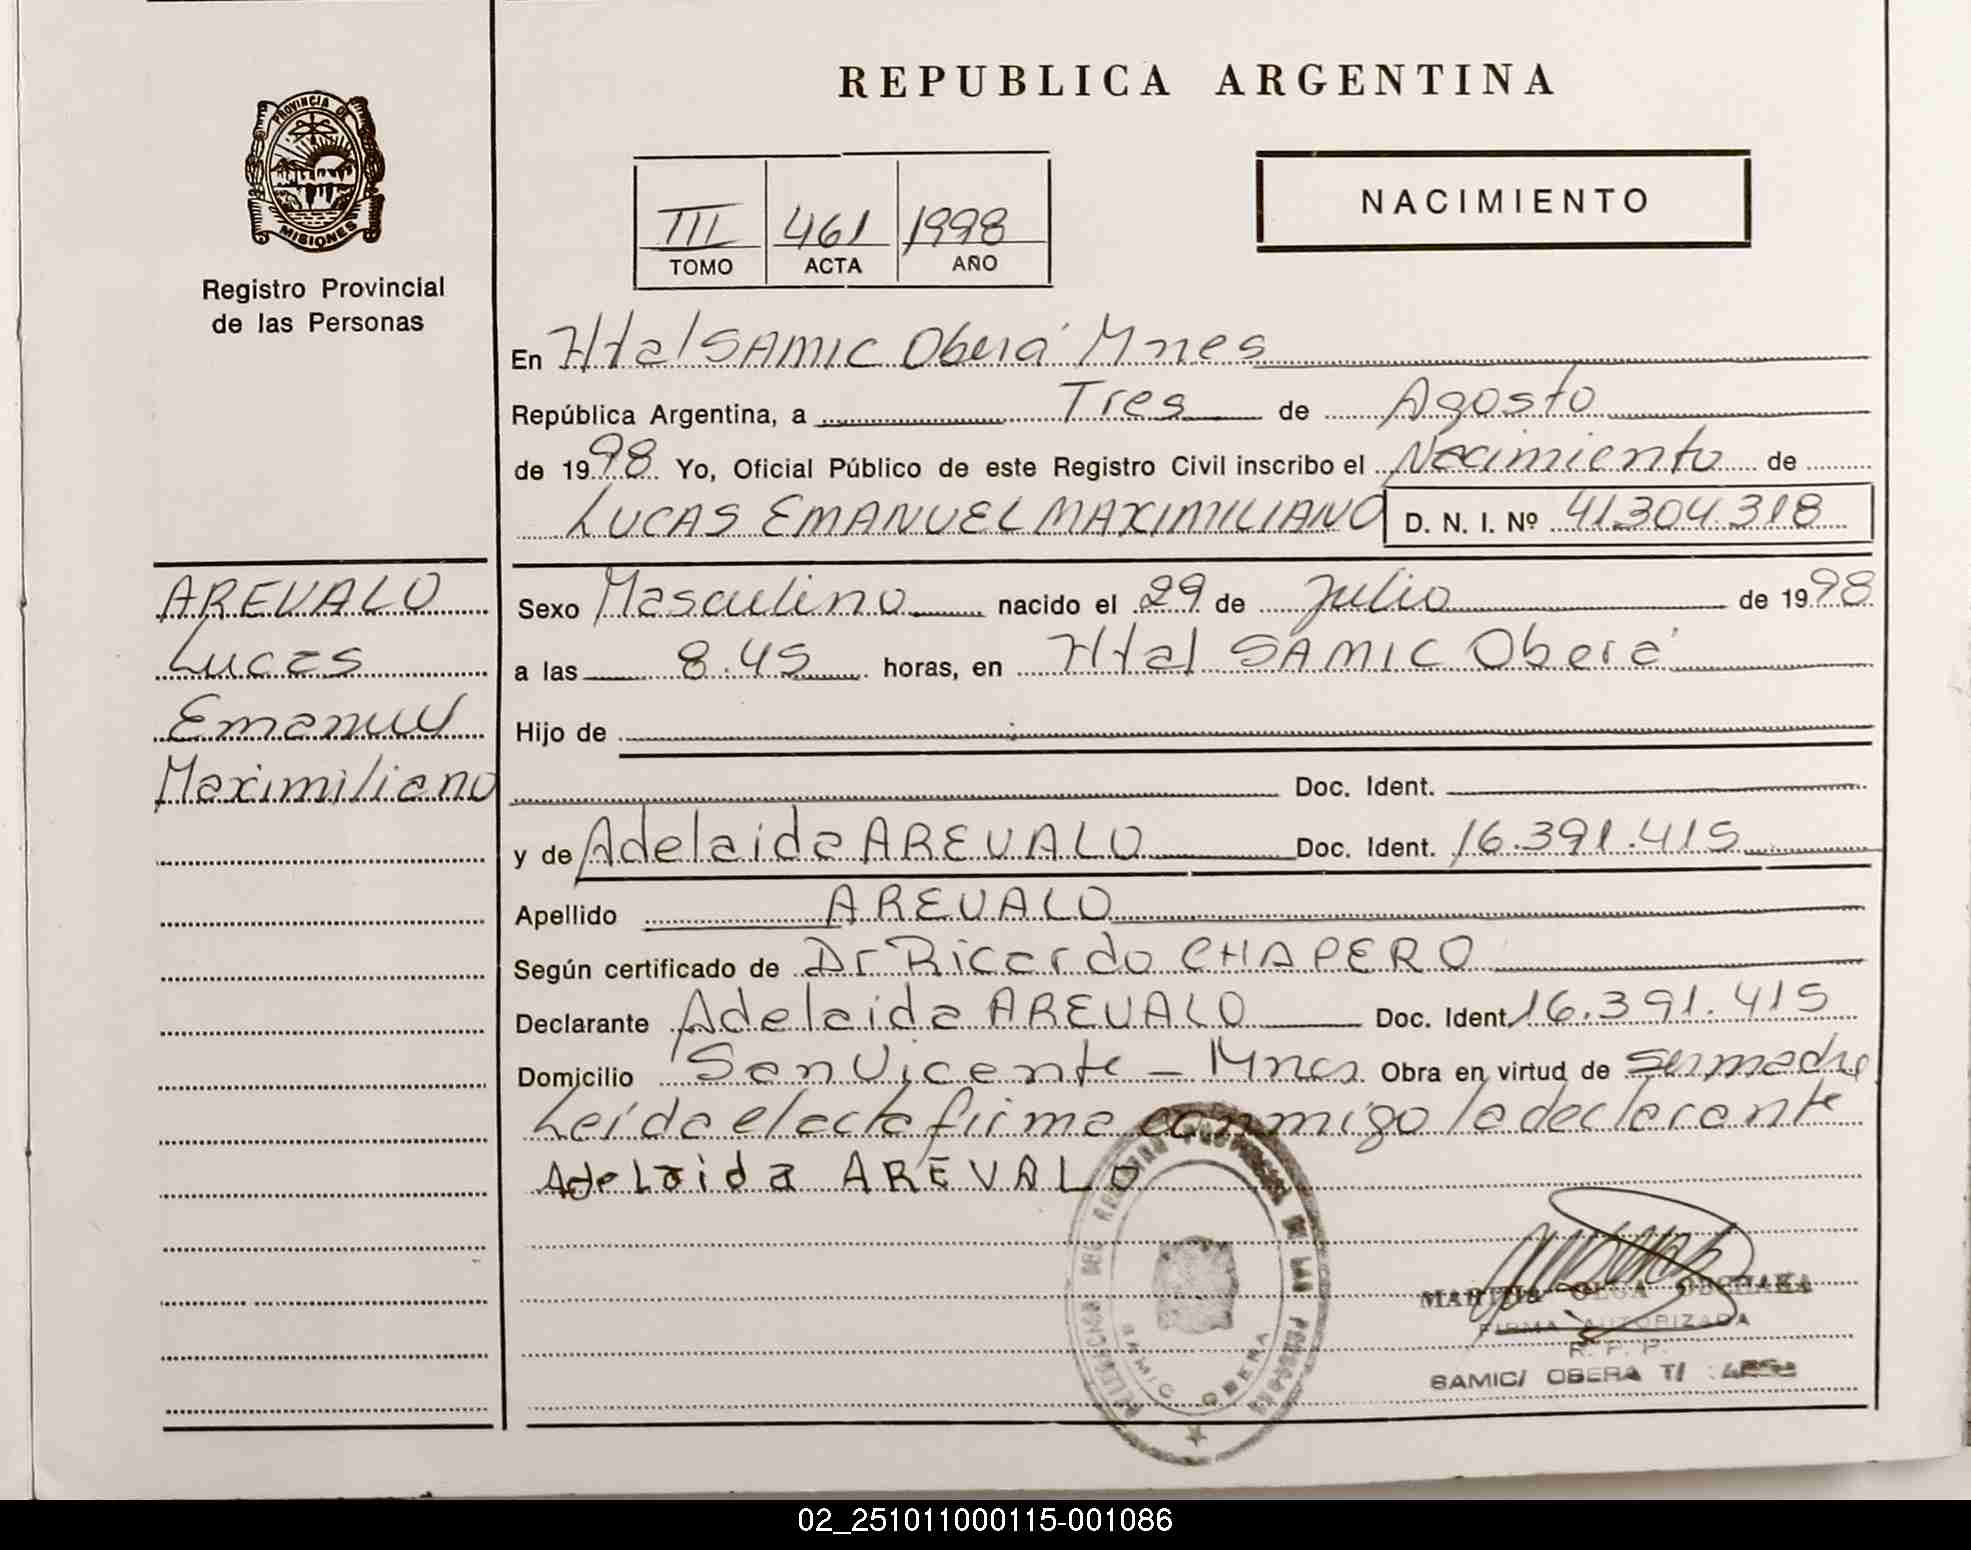 REPUBLICA ARGENTINA
PROVINCIA DE
MISIONES
Registro Provincial
de las Personas
III 461 1998
TOMO ACTA AÑO
NACIMIENTO
En Htal SAMIC Oberá Mnes
República Argentina, a Tres de Agosto
de 1998 Yo, Oficial Público de este Registro Civil inscribo el Nacimiento de
LUCAS EMANUEL MAXIMILIANO D. N. I. Nº 41.304.318
AREVALO
Lucas
Emanuel
Maximiliano
Sexo Masculino nacido el 29 de Julio de 1998
a las 8.45 horas, en Htal SAMIC Oberá
Hijo de
Doc. Ident.
y de Adelaida AREVALO Doc. Ident. 16.391.415
Apellido AREVALO
Según certificado de Dr Ricardo CHAPERO
Declarante Adelaida AREVALO Doc. Ident. 16.391.415
Domicilio San Vicente - Mnes Obra en virtud de ser madre
Leída el acta firma conmigo la declarante
Adelaida AREVALO
DELEGACION DEL REGISTRO PROVINCIAL DE LAS PERSONAS
SAMIC OBERA
OLGA
FIRMA AUTORIZADA
R. P. P.
SAMIC/ OBERA
02_251011000115-001086